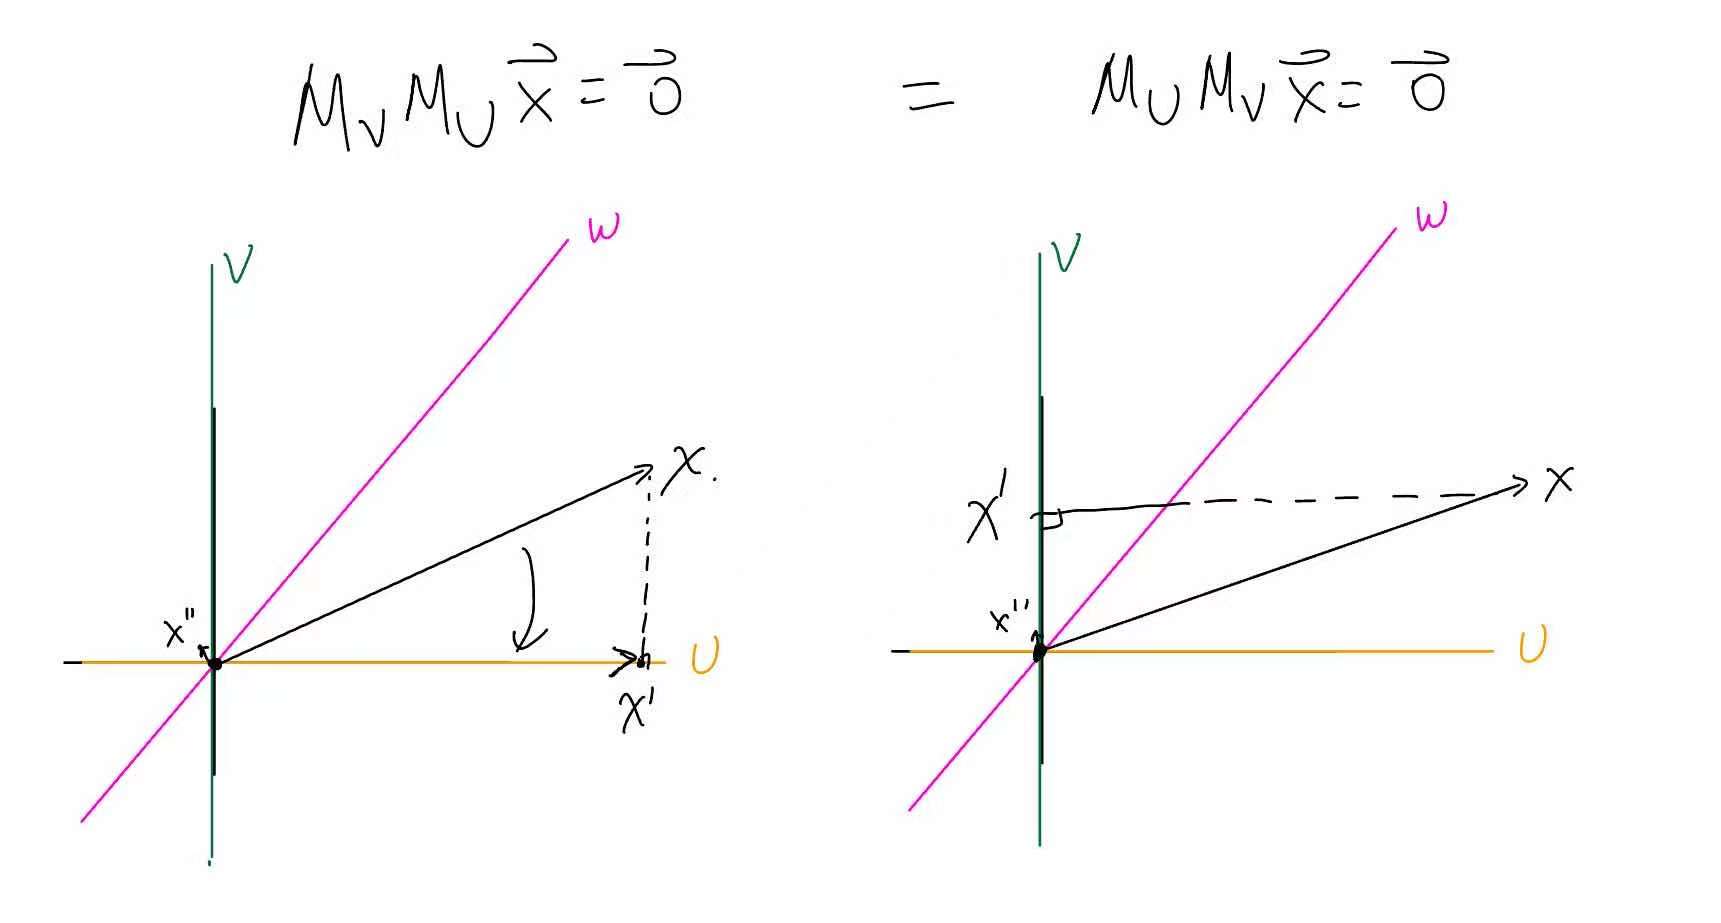 M_V M_U x⃗ = 0⃗ = M_U M_V x⃗ = 0⃗
W
V
x.
x''
U
x'
W
V
x
x'
x''
U